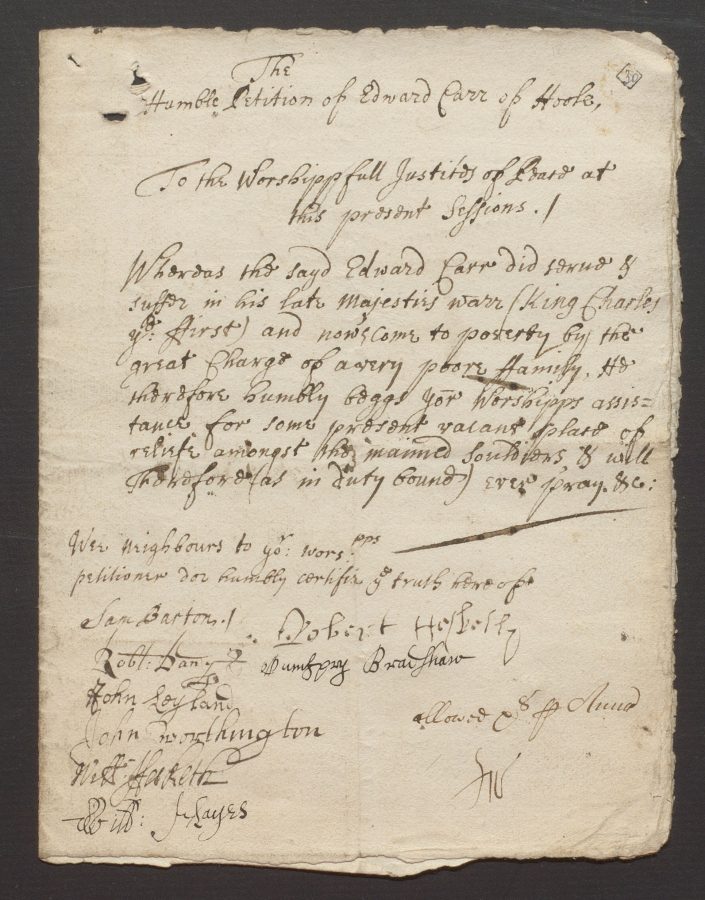 39
The
Humble Petition of Edward Carr of Hoole,
To the Worshippfull Justices of Peace at
this present Sessions . /
Whereas the sayd Edward Carr did serve &
suffer in his late Majesties warr (King Charles
ye: ffirst) and now come to poverty by the
great Charge of a very poore ffamily. He
therefore humbly beggs yor Worshipps assis=
tance for some present vacant place of
reliefe amongst the maimed souldiers & will
Therefore (as in duty bound) ever pray. &c:
Wee neighbours to yor: worspps
petitioner doe humbly certifie ye truth hereof
Sam Barton. /
Robert Hesketh
Robt:
Humfrey Bradshaw
John Leyland
allowed
John Worthington
Will: Hesketh
Will: Hayes